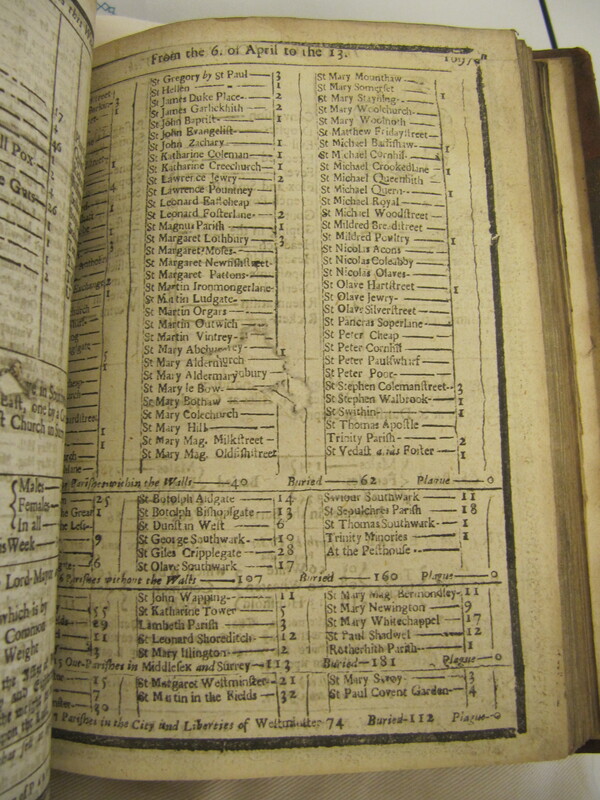 From the 6. of April to the 13.
St Gregory by St Paul 3
St Hellen 1
St James Duke Place 2
St James Garlickhith 2
St John Baptist 1
St John Evangelist
St John Zachary 1
St Katharine Coleman 1
St Katharine Creechurch 1
St Lawrence Jewry 2
St Lawrence Pountney
St Leonard Eastcheap
St Leonard Fosterlane 2
St Magnus Parish 1
St Margaret Lothbury 3
St Margaret Moses
St Margaret Newfishstreet
St Margaret Pattons
St Martin Ironmongerlane
St Martin Ludgate
St Martin Orgars
St Martin Outwich
St Martin Vintrey
St Mary Abchurch
St Mary Aldermanbury
St Mary Aldermary
St Mary le Bow
St Mary Bothaw
St Mary Colechurch
St Mary Hill
St Mary Mag. Milkstreet
St Mary Mag. Oldfishstreet
St Mary Mounthaw
St Mary Somerset
St Mary Stayning 1
St Mary Woolchurch
St Mary Woolnoth
St Matthew Fridaystreet
St Michael Bassishaw 1
St Michael Cornhil
St Michael Crookedlane 1
St Michael Queenhith
St Michael Quern 1
St Michael Royal
St Michael Woodstreet
St Mildred Breadstreet
St Mildred Poultry 1
St Nicolas Acons
St Nicolas Coleabby
St Nicolas Olaves
St Olave Hartstreet 1
St Olave Jewry
St Olave Silverstreet
St Pancras Soperlane
St Peter Cheap
St Peter Cornhil
St Peter Paulswharf
St Peter Poor
St Stephen Colemanstreet 3
St Stephen Walbrook 1
St Swithin 1
St Thomas Apostle
Trinity Parish 2
St Vedast alias Foster 1
Parishes within the Walls 40 Buried 62 Plague 0
St Botolph Aldgate 14
St Botolph Bishopsgate 13
St Dunstan West 6
St George Southwark 10
St Giles Cripplegate 28
St Olave Southwark 17
Saviour Southwark 11
St Sepulchres Parish 18
St Thomas Southwark 1
Trinity Minories 1
At the Pesthouse
Parishes without the Walls 107 Buried 160 Plague 0
St John Wapping 11
St Katharine Tower 5
Lambeth Parish 3
St Leonard Shoreditch 12
St Mary Islington 2
St Mary Mag. Bermondsey 11
St Mary Newington 9
St Mary Whitechappel 17
St Paul Shadwel 12
Rotherhith Parish 1
Out-Parishes in Middlesex and Surrey 113 Buried 181 Plague 0
St Margaret Westminster 21
St Martin in the Fields 32
St Mary Savoy 3
St Paul Covent Garden 4
Parishes in the City and Liberties of Westminster 74 Buried 112 Plague 0
Males
Females
In all
Lord Mayor
which is by
Common
Weight